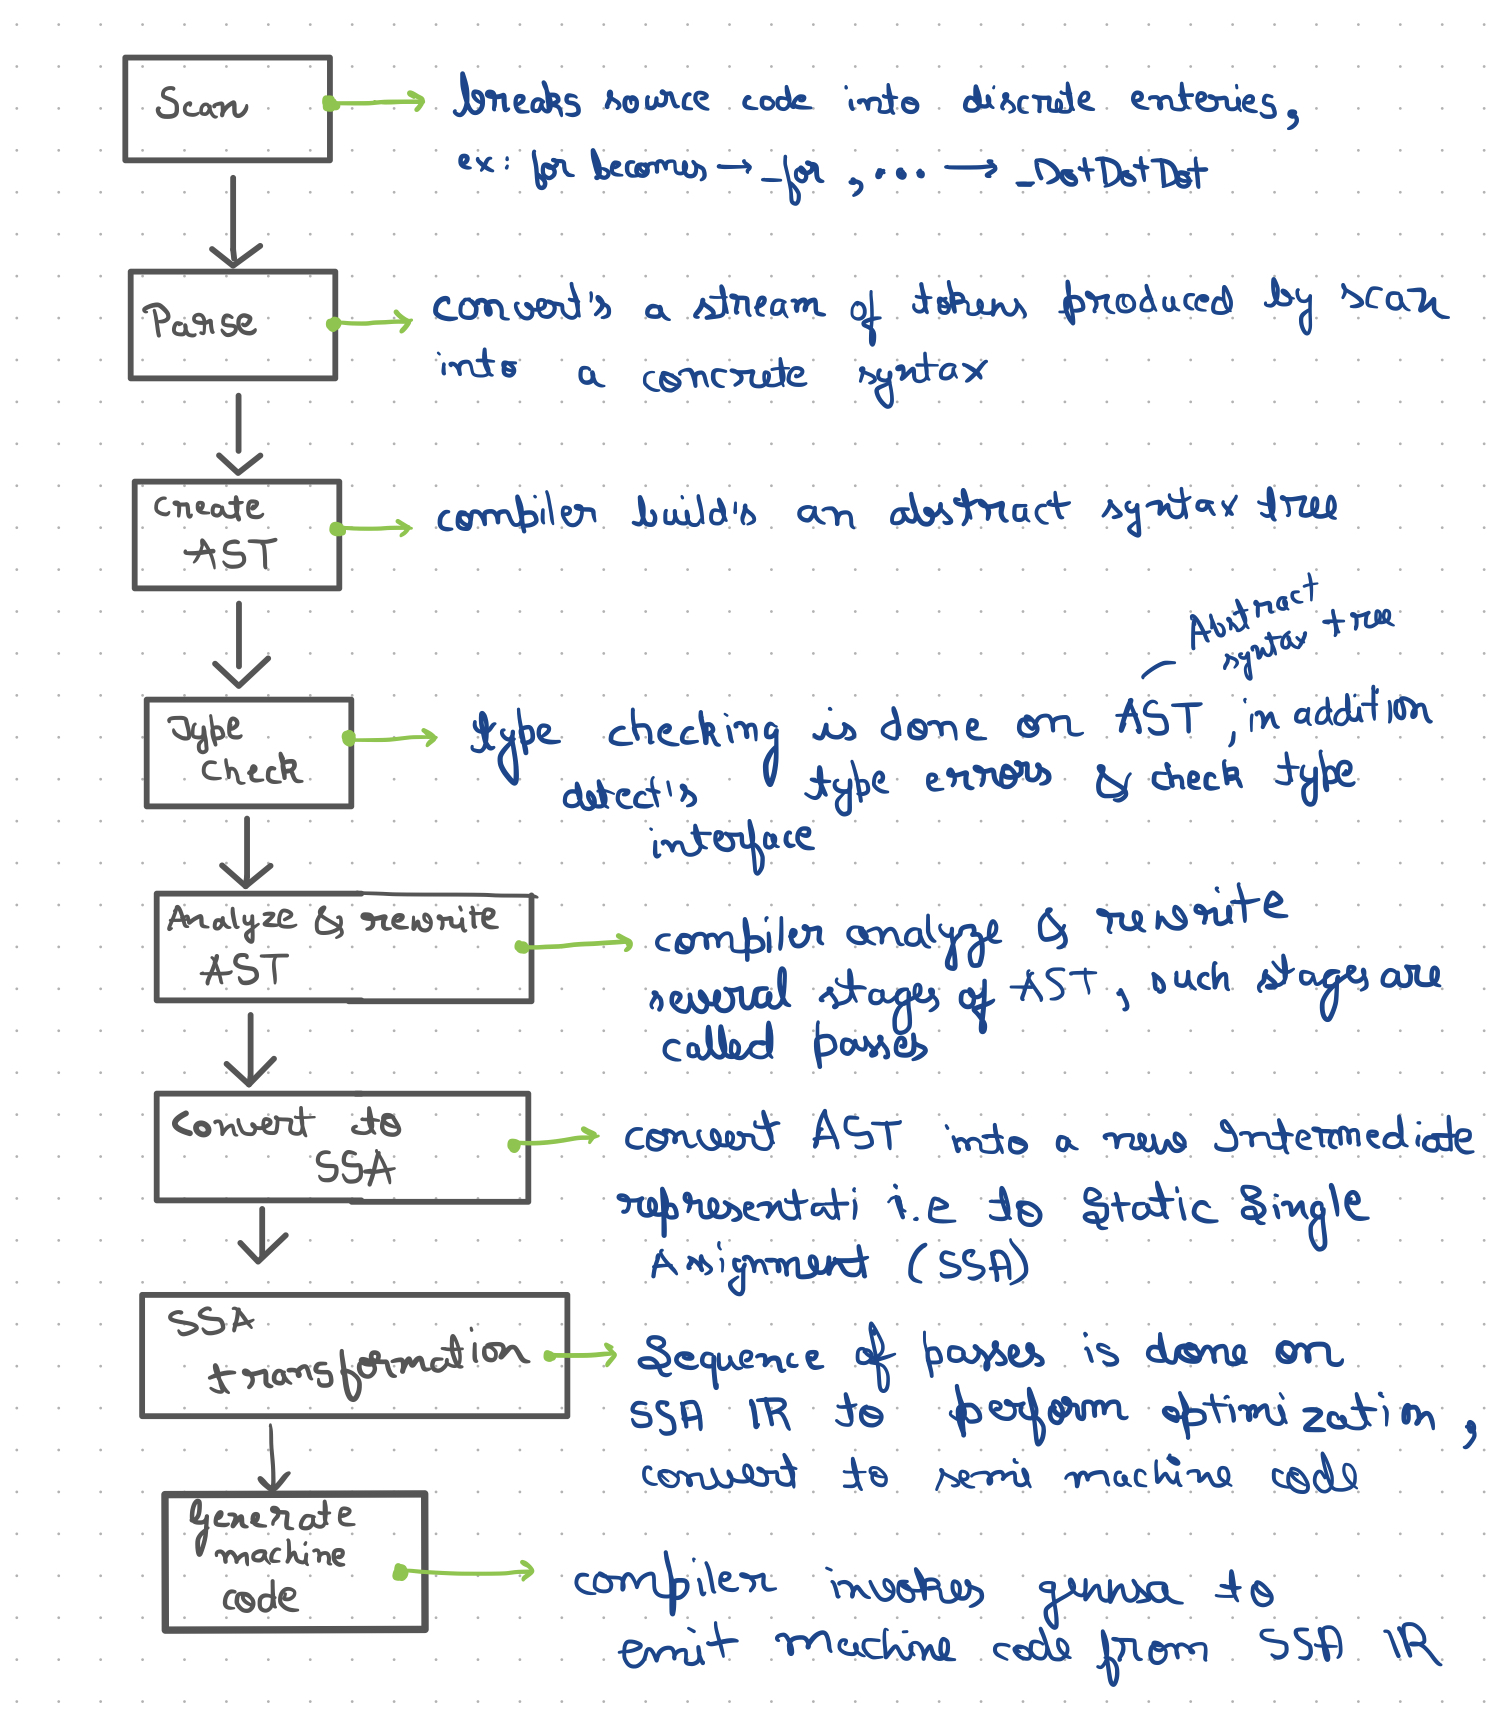 Scan
breaks source code into discrete enteries,
ex: for becomes → _for , ... → _DotDotDot
Parse
convert's a stream of tokens produced by scan
into a concrete syntax
Create
AST
compiler build's an abstract syntax tree
Abstract
syntax tree
Type
check
type checking is done on AST, in addition
detect's type errors & check type
interface
Analyze & rewrite
AST
compiler analyze & rewrite
several stages of AST, such stages are
called passes
Convert to
SSA
convert AST into a new Intermediate
representati i.e to Static Single
Assignment (SSA)
SSA
transformation
Sequence of passes is done on
SSA IR to perform optimization,
convert to semi machine code
Generate
machine
code
compiler invokes genssa to
emit machine code from SSA IR